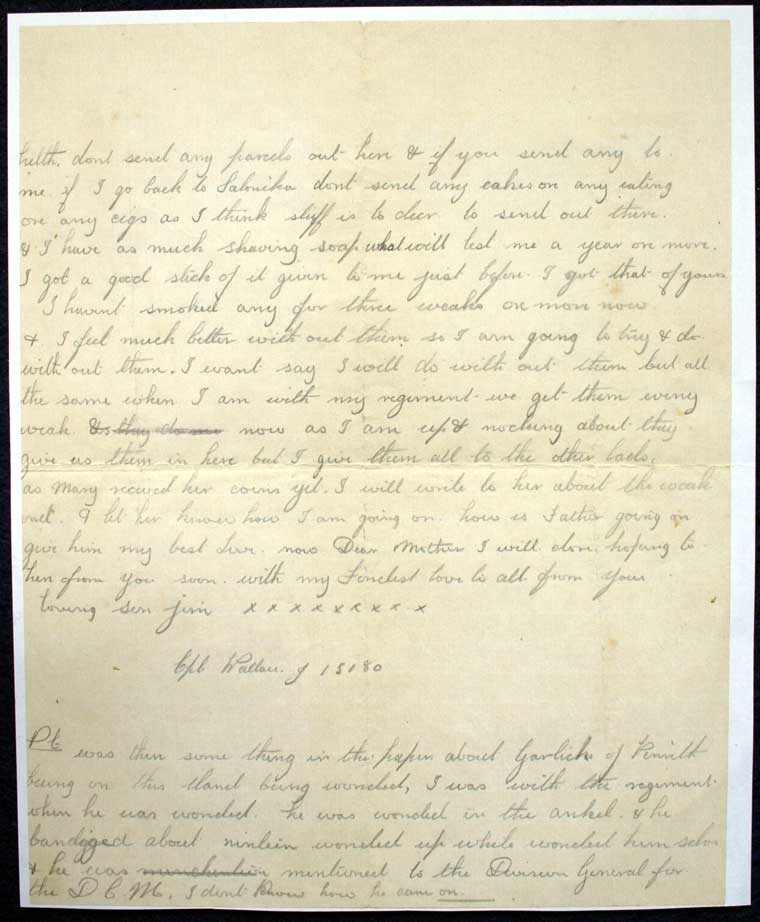 helth. dont send any parcels out here & if you send any to
me if I go back to Salonika dont send any cakes or any eating
or any cigs as I think stuff is to deer to send out there.
& I have as much shaving soap what will lest me a year or more.
I got a good stick of it given to me just before I got that of yours
I havnt smoked any for three weaks or more now
& I feel much better with out them so I am going to try & do
with out them. I want say I will do with out them but all
the same when I am with my regiment we get them every
weak. as they do me now as I am up & nocking about they
give us them in here but I give them all to the other lads.
as Mary received her coins yet. I will write to her about the weak
end. & let her know how I am going on. how is Father going on
give him my best Love. now Dear Mother I will close. hoping to
her from you soon. with my Fondest love to all from your
loving son jim x x x x x x x x x
Cpl Wallace. J 15180
was there some thing in the paper about Garlick of Penrith
being on this Iland being wonded, I was with the regiment
when he was wonded. he was wonded in the ankel. & he
bandiged about ninteen wonded up while wonded him selve
& he was mentioned to the Division General for
the D C M. I dont know how he came on.